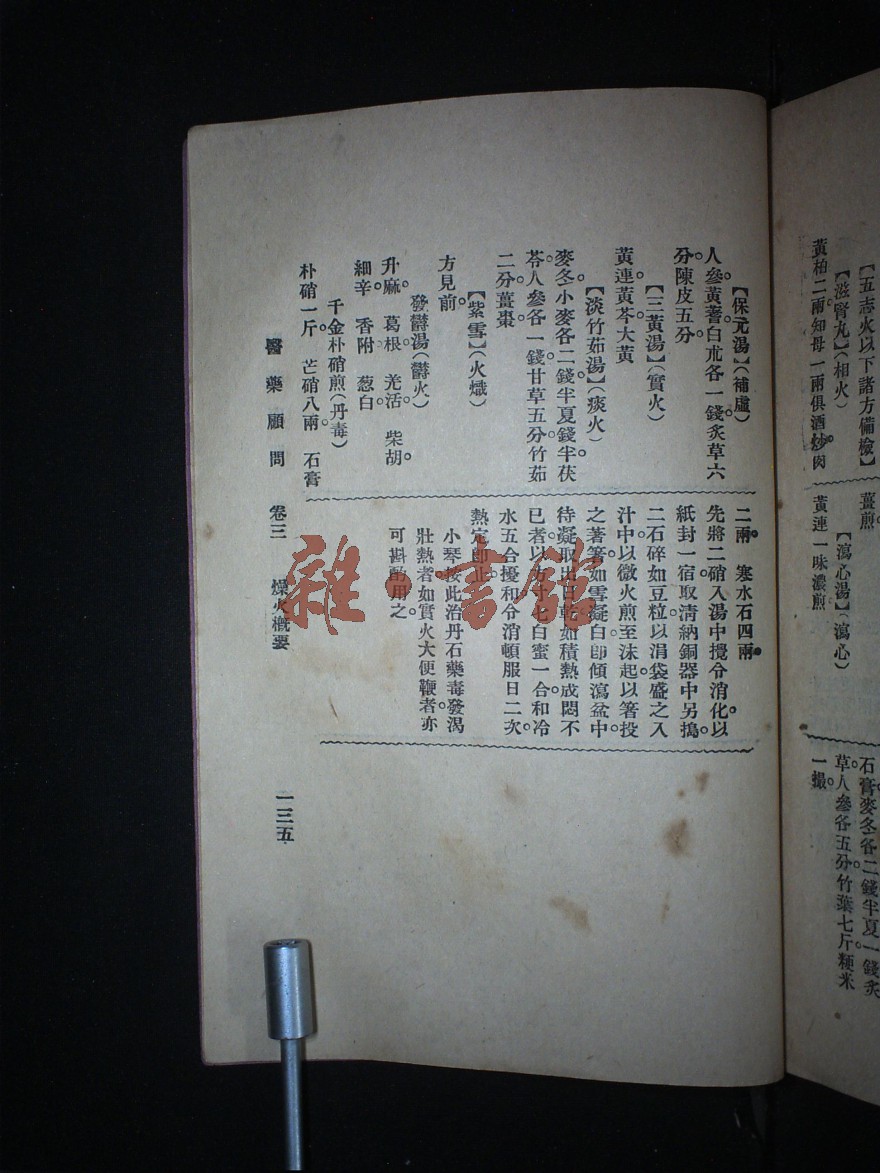 【五志火以下諸方備檢】
【滋腎丸】(相火)
黃柏二兩知母一兩俱酒炒肉
薑煎。
【瀉心湯】(瀉心)
黃連一味濃煎
石膏麥冬各二錢半夏一錢炙
草人參各五分竹葉七斤粳米
一撮。
【保元湯】(補虛)
人參黃蓍白朮各一錢炙草六
分陳皮五分
【三黃湯】(實火)
黃連黃芩大黃
【淡竹茹湯】(痰火)
麥冬小麥各二錢半夏錢半茯
苓人參各一錢甘草五分竹茹
二分薑棗
【紫雪】(火熾)
方見前。
發鬱湯(鬱火)
升麻。葛根。羌活 柴胡。
細辛。香附 葱白
千金朴硝煎(丹毒)
朴硝一斤。芒硝八兩。石膏
二兩。寒水石四兩。
先將二硝入湯中攪令消化。以
紙封一宿。取清納銅器中。另搗
二石碎如豆粒以涓袋盛之入
汁中。以微火煎至沫起。以箸投
之著箸如雪凝白。卽傾瀉盆中。
待凝取出日乾。如積熱成悶不
已者。以方寸匕白蜜一合和冷
水五合。擾和令消。頓服日二次。
熱定卽止。
小琴按此治丹石藥毒發渴
壯熱者。如實火大便鞕者。亦
可斟酌用之
醫藥顧問 卷三 燥火概要 一三五
雜·書館